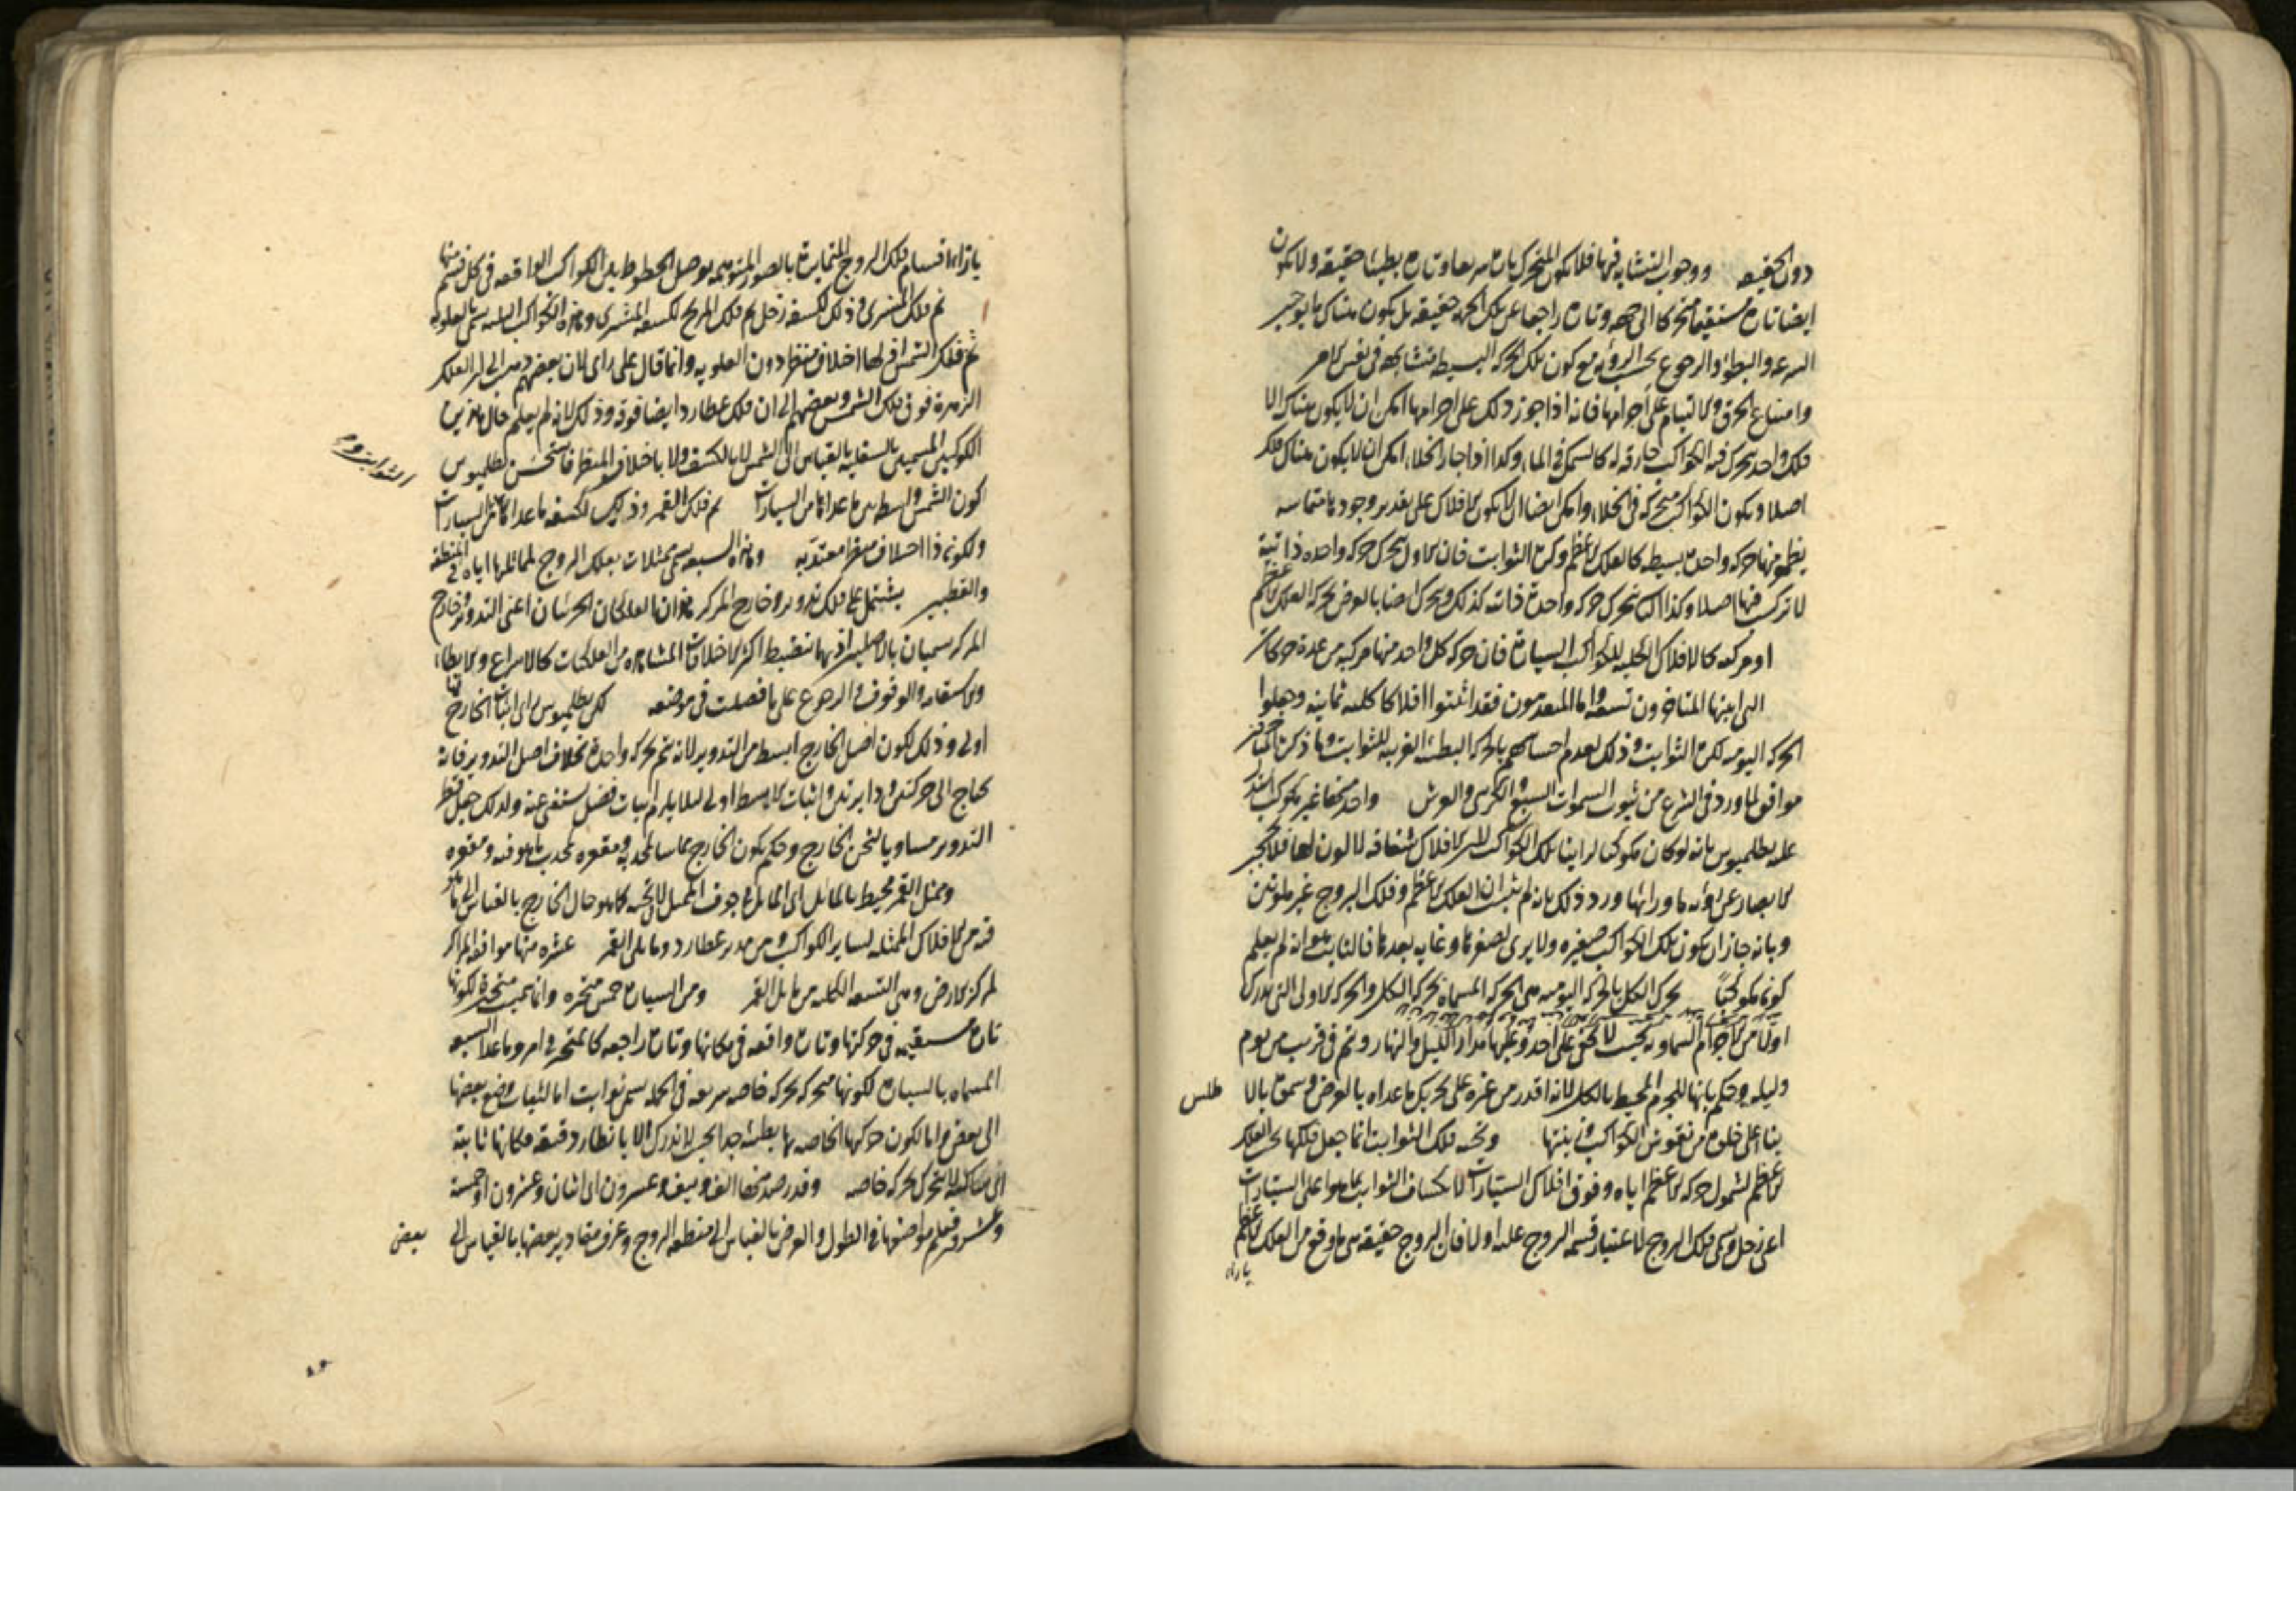 دون الحقيقه ووجوب التشابه فيها فلا يكون المتحرك بها تارة سريعا وتارة بطيئا حقيقة ولا يكون
ايضا تارة مستقيما متحركا الى جهه وتارة راجعا عن تلك الجهه حقيقة بل يكون هناك ما يوجب
السرعه والبطؤ والرجوع بحسب الرؤية مع كون تلك الحركه البسيطه متشابهة في نفس الامر
وامتناع الخرق والالتيام على اجرامها فانه اذا جوز ذلك على اجرامها امكن ان لا يكون هناك الا
فلك واحد يتحرك فيه الكواكب خارقه له كالسمك في الماء وكذا اذا جاز الخلاء امكن ان لا يكون هناك فلك
اصلا ويكون الكواكب متحركه في الخلاء وامكن ايضا ان لا يكون الافلاك على تقدير وجودها متماسه
يظهر منها حركه واحدة بسيطه كالفلك الاعظم وكرة الثوابت فان الاول يتحرك حركه واحده ذاتية
لا تركب فيها اصلا وكذا الثانى يتحرك حركه واحدة ذاتيه كذلك ويتحرك ايضا بالعرض بحركه الفلك الاعظم
او مركبه كالافلاك الكليه للكواكب السيارة فان حركه كل واحد منها مركبه من عدة حركات
التى اثبتها المتاخرون تسعه واما المتقدمون فقد اثبتوا افلاكا كليه ثمانيه وجعلوا
الحركه اليوميه لكرة الثوابت وذلك لعدم احساسهم بالحركه البطيئه الغريبه للثوابت وما ذكره المتاخرون
موافق لما ورد فى الشرع من ثبوت السموات السبع والكرسى والعرش واحد منها غير مكوكب استدل
عليه بطلميوس بانه لو كان مكوكبا لراينا تلك الكواكب لان الافلاك شفافه لا لون لها فلا تحجب
الابصار عن رؤيه ما ورائها ورد ذلك بانه لم يثبت ان الفلك الاعظم وفلك البروج غير ملونين
وبانه جاز ان يكون تلك الكواكب صغيره ولا يرى لصغرها وغايه بعدها فالثابت هو انه لم يعلم
كونه مكوكبا تحرك الكل بالحركه اليوميه هى الحركه المسماه بحركه الكل والحركه الاولى التى تدرك
اولا من الاجرام السماويه بحيث لا تخفى على احد وعليها مدار الليل والنهار وتتم فى قريب من يوم
وليله وحكم بانها للجرم المحيط بالكل لانه اقدر من غيره على تحريك ما عداه بالعرض وسموه بالا
طلس
بناء على خلوه من نقوش الكواكب وزينتها وتحته فلك الثوابت انما جعل فلكها تحت الفلك
الاعظم لشمول حركه الاعظم اياه وفوق افلاك السيارات لانكساف الثوابت بما هو اعلى السيارات
اعنى زحل وسمى فلك البروج لاعتبار قسمه البروج عليه اولا فان البروج حقيقه هى ما وقع من الفلك الاعظم
بازاء
بازائها اقسام فلك البروج المتمايزة بالصور المتوهمه بوصل الخطوط بين الكواكب الواقعه فى كل قسم منها
ثم فلك المشترى وذلك لكسفه زحل ثم فلك المريخ لكسفه المشترى وهذه الكواكب الثلثه تسمى بالعلويه
ثم فلك الشمس اذ لها اختلاف منظر دون العلويه وانما قال على راى لان بعضهم ذهب الى ان فلك
الزهرة فوق فلك الشمس وبعضهم الى ان فلك عطارد ايضا فوقه وذلك لانه لم يعلم حال هذين
الكوكبين المسميين بالسفليه بالقياس الى الشمس لا بالكسف ولا باختلاف المنظر فاستحسن بطلميوس
الثوابت وم
كون الشمس واسطه بين ما عداها من السيارات ثم فلك القمر وذلك لكسفه ما عداه من السيارات
ولكونه ذا اختلاف منظر معتد به وهذه السبعه تسمى ممثلات بفلك البروج لمماثلتها اياه فى المنطقه
والقطبين يشتمل على فلك تدوير وخارج المركز هذان الفلكان الجزئيان اعنى التدوير وخارج
المركز يسميان بالاصلين اذ بهما تنضبط اكثر الاختلافات المشاهده من الفلكيات كالاسراع والابطاء
والاستقامه والوقوف والرجوع على ما فصلت فى موضعه لكن بطلميوس راى اثبات الخارج لها
اولى وذلك لكون اصل الخارج ابسط من التدوير لانه يتم بحركه واحدة بخلاف اصل التدوير فانه
يحتاج الى حركتين ودايرتين واثبات الابسط اولى لئلا يلزم اثبات فضل يستغنى عنه ولذلك جعل قطر
التدوير مساويا لثخن الخارج وحكم بكون الخارج مماسا بمحدبه ومقعره لمحدب ما هو فيه ومقعره
وممثل القمر محيط بالمائل اى المائل فى جوف الممثل لا فى ثخنه كما هو حال الخارج بالقياس الى ما هو
فيه من الافلاك الممثله لساير الكواكب ومن مدير عطارد ومايل القمر عشره منها موافقه المراكز
لمركز الارض وهى التسعه الكليه مع مايل القمر ومن السيارة خمس متحيرة وانما سميت متحيرة لكونها
تارة مستقيمه فى حركتها وتارة واقفه فى مكانها وتارة راجعه كالمتحير فى امره وما عدا السبعه
المسماه بالسيارة لكونها متحركه بحركه خاصه سريعه فى الجمله تسمى ثوابت اما لثبات وضع بعضها
الى بعض واما لكون حركتها الخاصه بها بطيئه جدا بحيث لا تدرك الا بانظار دقيقه فكانها ثابته
اى ساكنه لا تتحرك بحركه خاصه وقد رصد منها الف ونيف وعشرون اى اثنان وعشرون او خمسة
وعشرون فعلم مواضعها فى الطول والعرض بالقياس الى منطقه البروج وعرف مقادير بعضها بالقياس الى
بعض